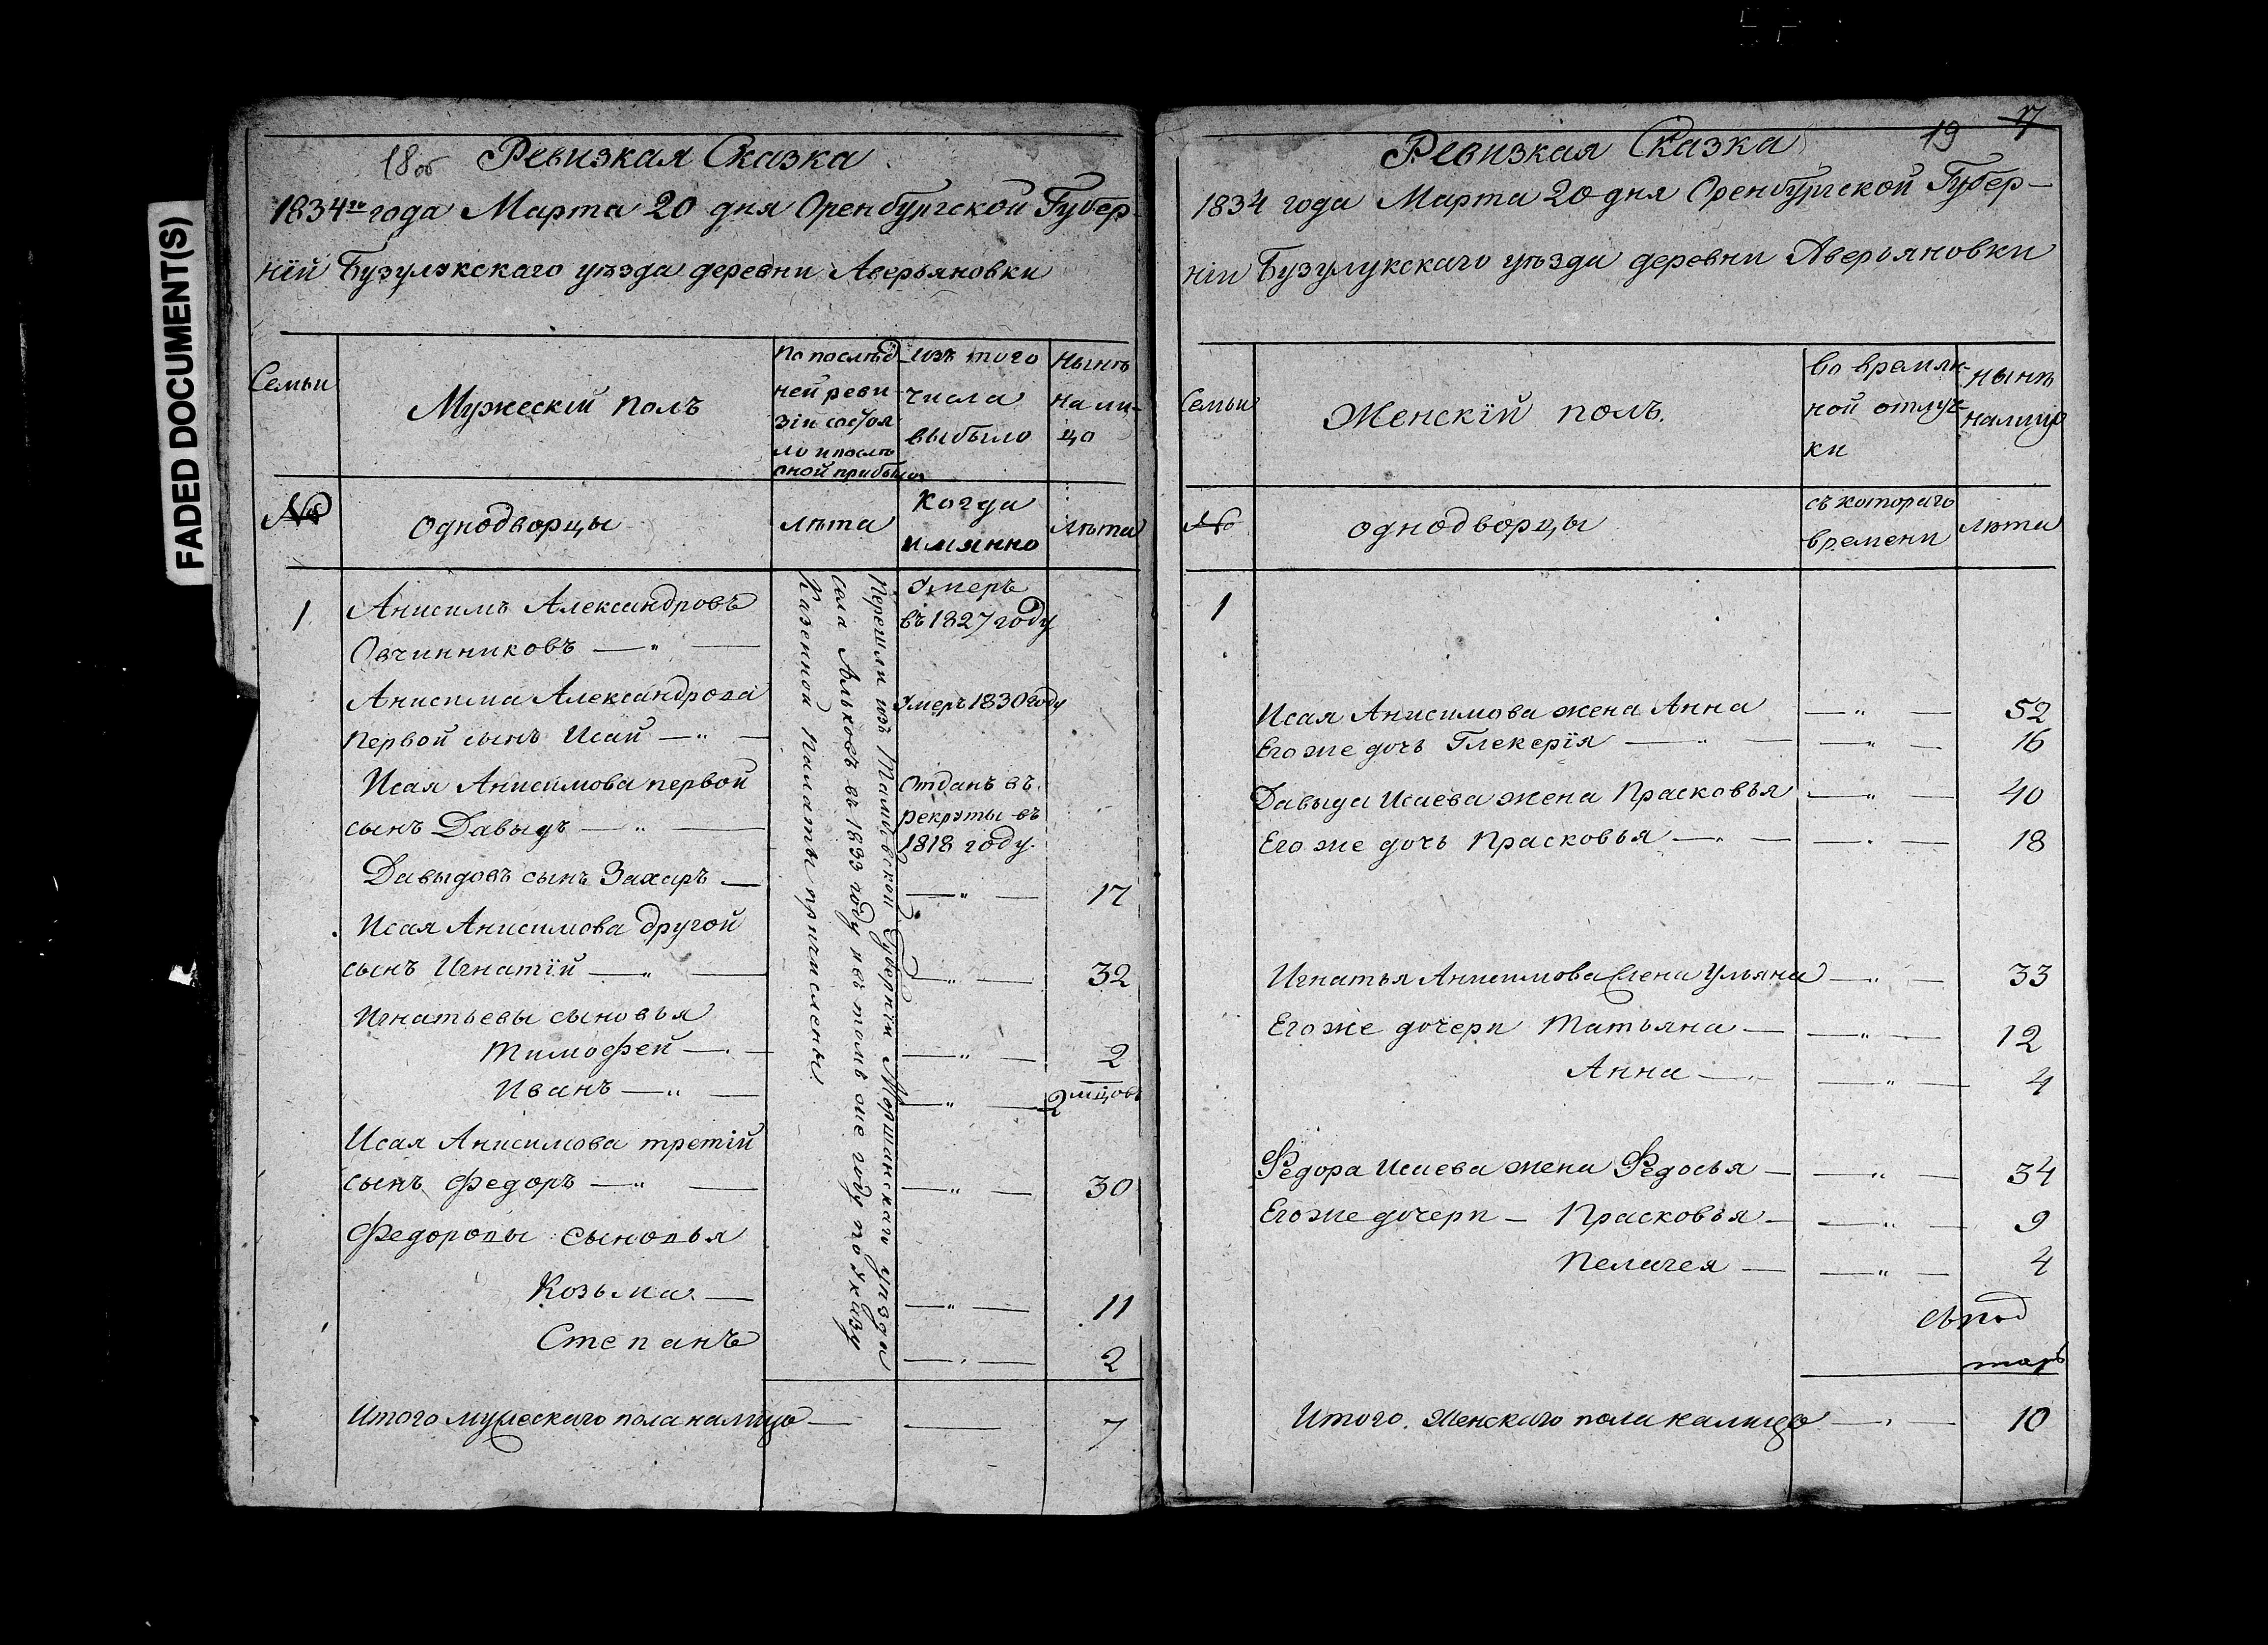 FADED DOCUMENT(S)
18об
Ревизкая Сказка
1834го года Марта 20 дня Оренбургской Губер-
нїй Бузулукскаго уѣзда деревни Аверьяновки
Семьи
Мужескїй полъ
По послѣд-
ней реви
зїи состоя
ло и послѣ
оной прибыло
изъ того
числа
выбыло
Нынѣ
на ли-
цо
№
Однодворцы
лѣта
Когда
имянно
лѣта
1
Анисимъ Александровъ
Овчинниковъ — " —
Умеръ
въ 1827 году
Анисима Александрова
первой сынъ Исай — " —
Умеръ 1830 году
Исая Анисимова первой
сынъ Давыдъ — " —
Отданъ въ
рекруты въ
1818 году.
Давыдовъ сынъ Захаръ —
— " —
17
Исая Анисимова другой
сынъ Игнатїй — " —
— " —
32
Игнатьевы сыновья
Тимофей — " —
— " —
2
Иванъ — " —
— " —
2 мцовъ
Исая Анисимова третїй
сынъ Федоръ — " —
— " —
30
Федоровы сыновья
Козьма —
— " —
11
Степанъ
— " —
2
Перешли изъ Тамбовской Губернїи Моршанскаго уѣзда
села Альковъ въ 1833 году и въ томъ же году по указу
Казенной палаты причислены
Итого мужескаго пола налицо —
—
7
17
19
Ревизкая Сказка
1834 года Марта 20 дня Оренбургской Губер-
нїи Бузулукскаго уѣзда деревни Аверьяновки
Семьи
Женскїй полъ.
Во времян-
ной отлуч-
ки
нынѣ
налицо
№
однодворцы
съ котораго
времени
лѣта
1
Исая Анисимова жена Анна — " — 52
Его же дочь Глекерїя — " — 16
Давыда Исаева жена Прасковья — " — 40
Его же дочь Прасковья — " — 18
Игнатья Анисимова жена Ульяна — " — 33
Его же дочери Татьяна — " — 12
Анна — " — 4
Федора Исаева жена Федосья — " — 34
Его же дочери — Прасковья — " — 9
Пелагея — " — 4
Итого женскаго пола налицо — " — 10